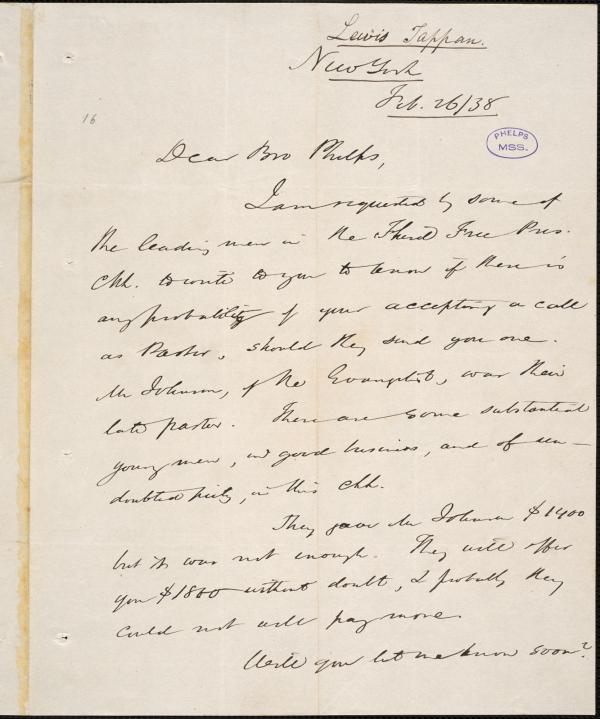 Lewis Tappan.
New York
Feb. 26/38
16
PHELPS
MSS.
Dear Bro Phelps,
I am requested by some of
the leading men in the Third Free Pres.
Chh. to write to you to know if there is
any probability of your accepting a call
as Pastor, should they send you one.
Mr Johnson, of the Evangelist, was their
late pastor. There are some substantial
young men, in good business, and of un-
doubted piety, in this Chh.
They gave Mr Johnson $1400
but it was not enough. They will offer
you $1800 without doubt, & probably they
could not well pay more.
Will you let me know soon?